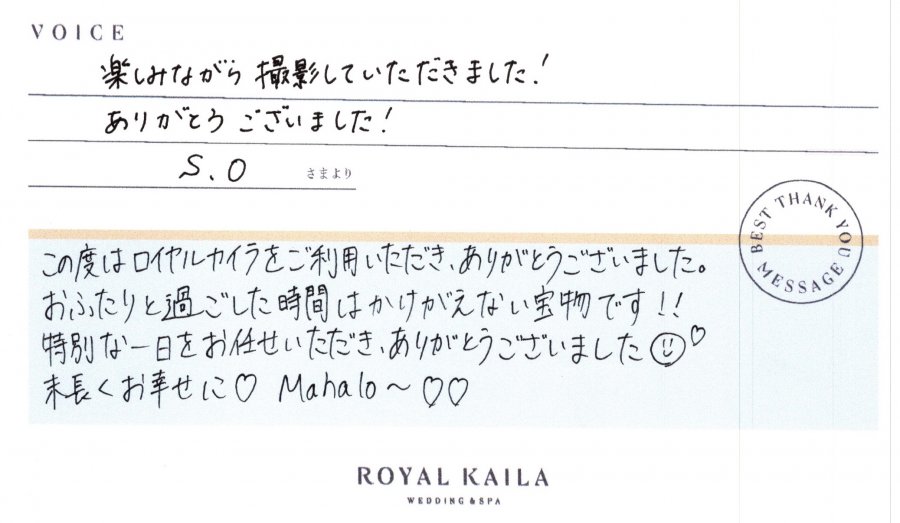 VOICE
楽しみながら撮影していただきました!
ありがとうございました!
S.O さまより
BEST THANK YOU MESSAGE
この度はロイヤルカイラをご利用いただき、ありがとうございました。
おふたりと過ごした時間はかけがえない宝物です!!
特別な一日をお任せいただき、ありがとうございました☺♡
末長くお幸せに♡ Mahalo〜♡♡
ROYAL KAILA
WEDDING & SPA